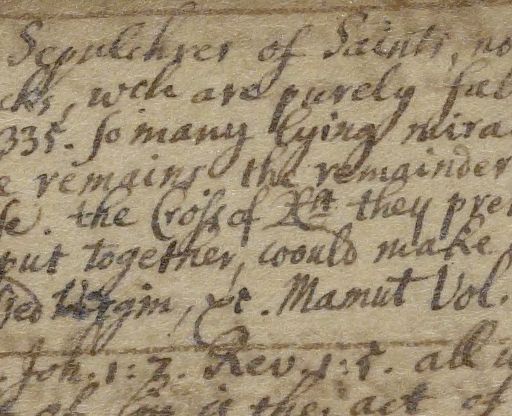 Sepulchres of Saints, no
cks, wch are purely fab
335. so many lying mira
e remains the remainder
se. the Cross of Xst they pret
put together, woould make
sed Virgin, &c. Mamut Vol.
Joh. 1:7. Rev. 1:5. all
of is the act of